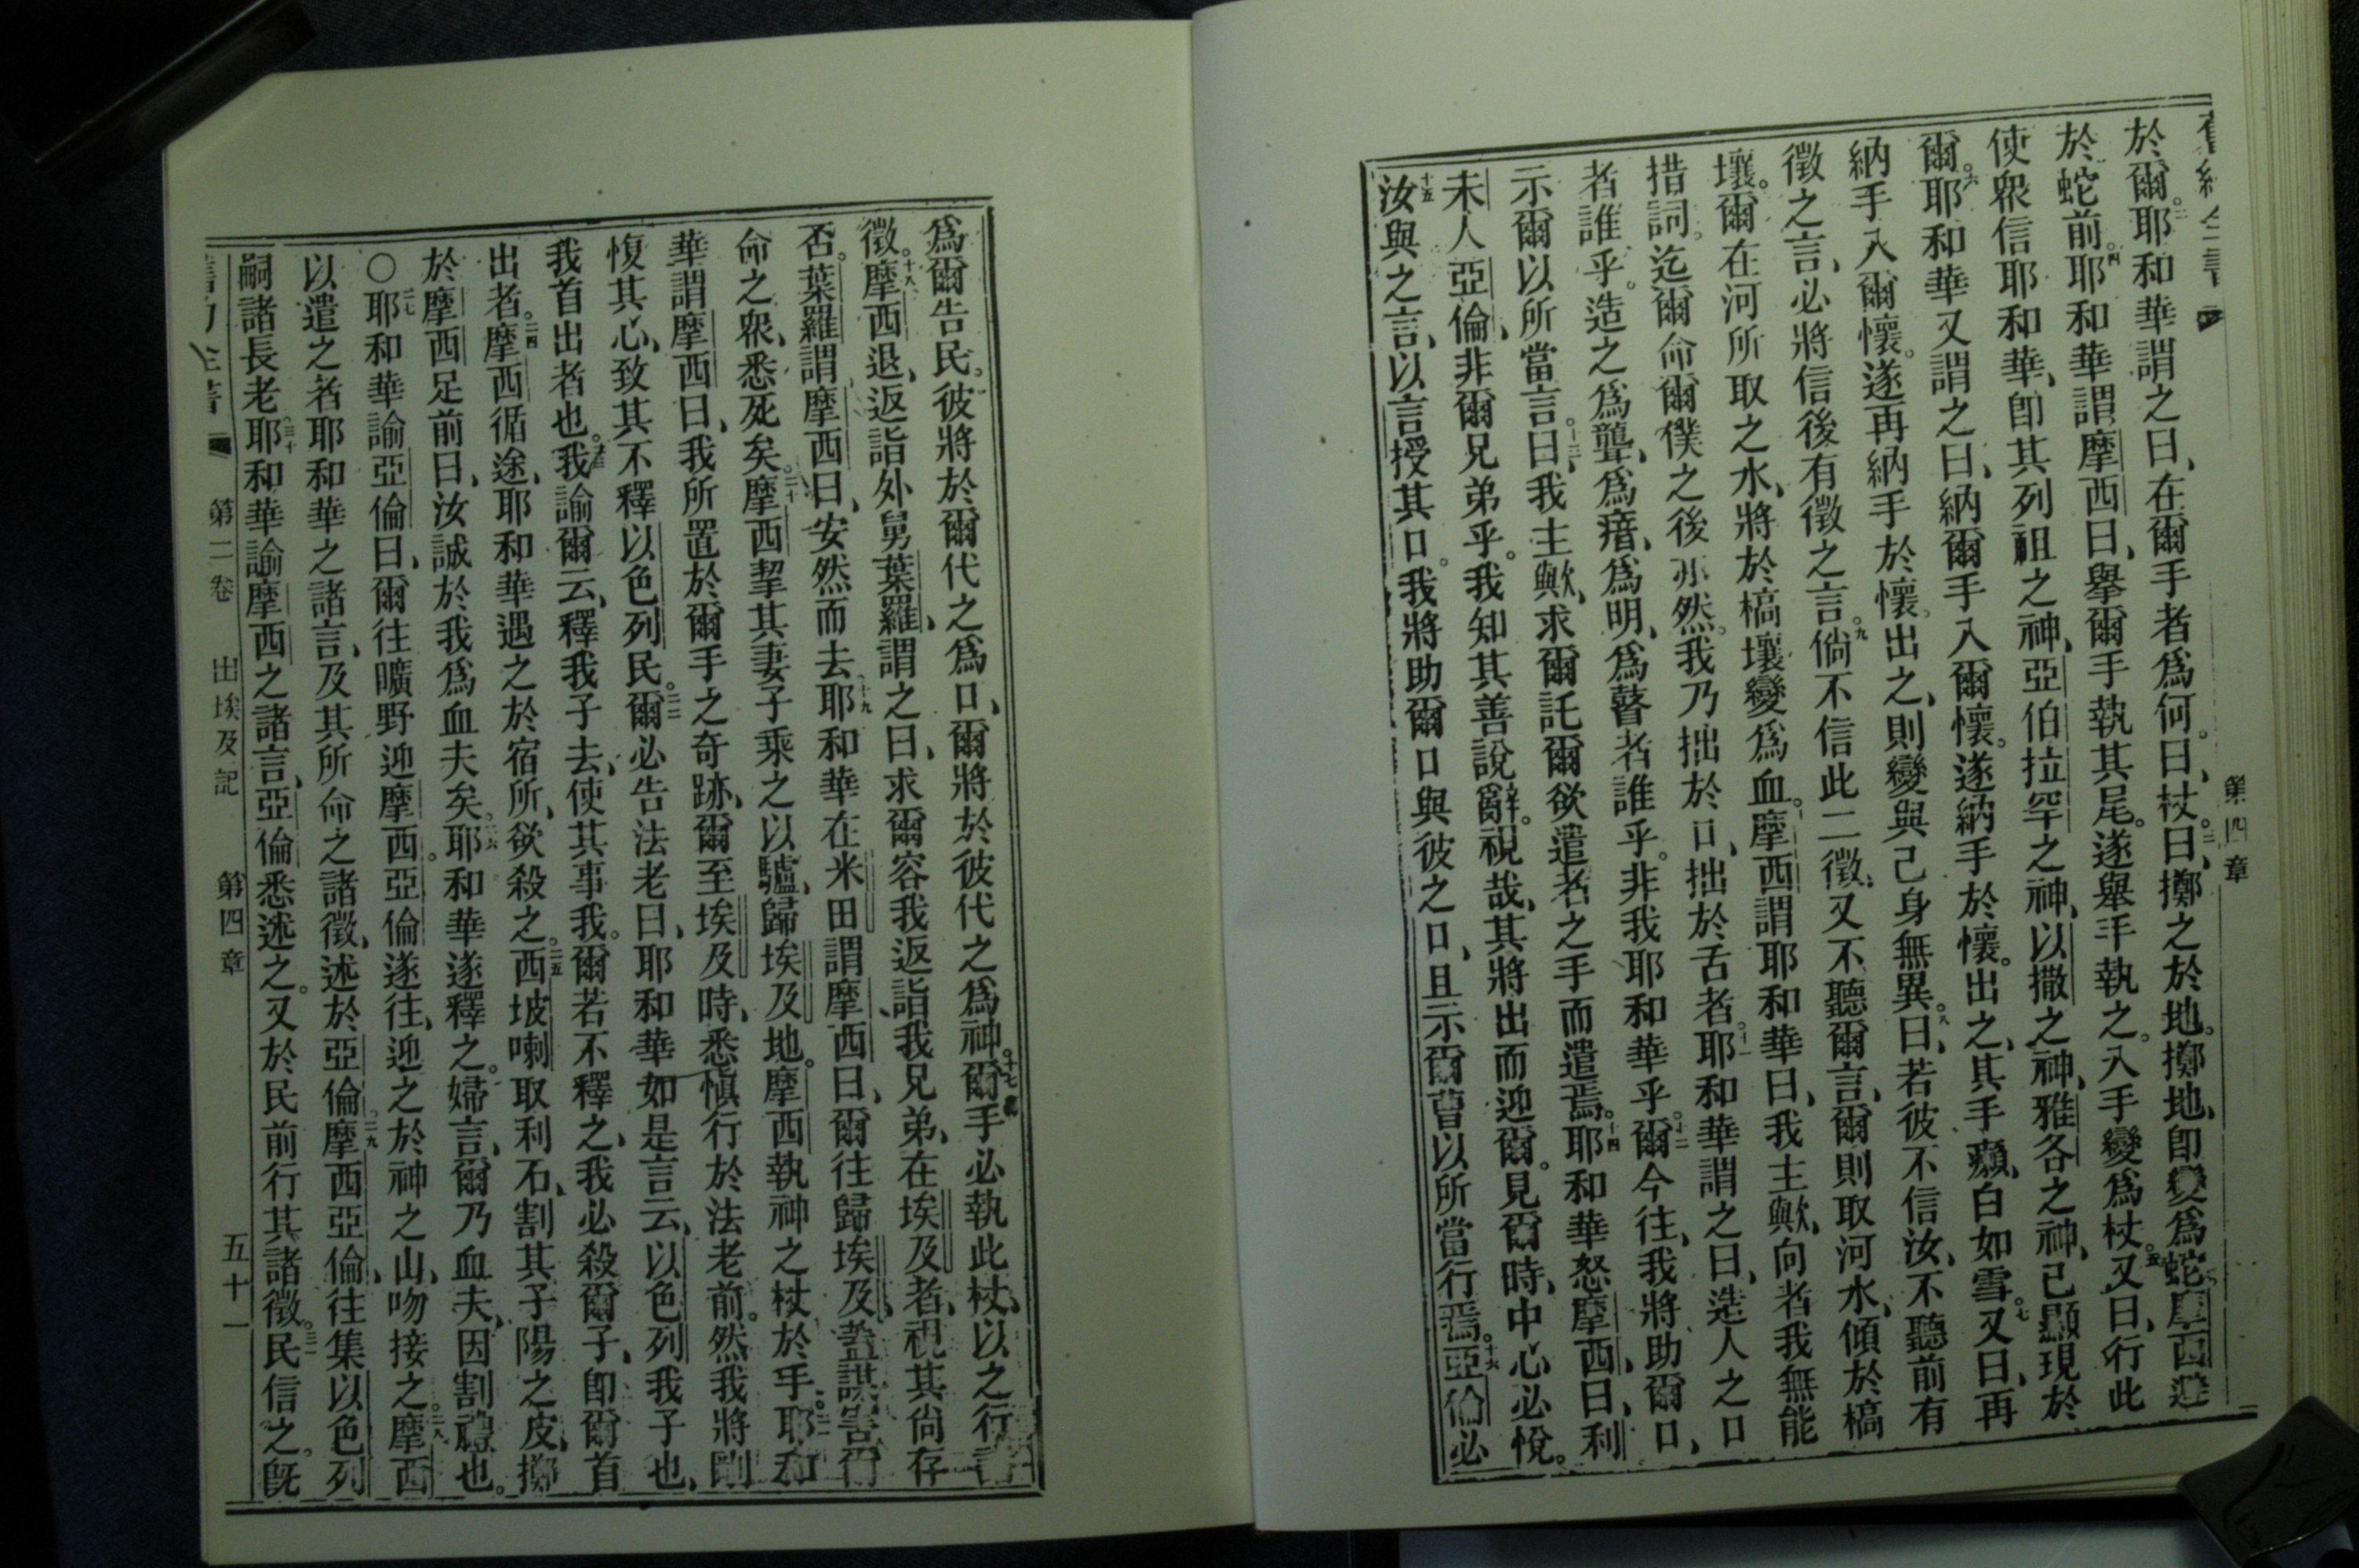 舊約全書
第四章
於爾。二耶和華謂之曰、在爾手者爲何。曰、杖。三曰、擲之於地。擲地、卽變爲蛇、摩西避
於蛇前。四耶和華謂摩西曰、舉爾手執其尾。遂舉手執之。入手變爲杖。五又曰、行此
使衆信耶和華、卽其列祖之神、亞伯拉罕之神、以撒之神、雅各之神、已顯現於
爾。六耶和華又謂之曰、納爾手入爾懷。遂納手於懷。出之、其手癩、白如雪。七又曰、再
納手入爾懷。遂再納手於懷。出之、則變與己身無異。八曰、若彼不信汝、不聽前有
徵之言、必將信後有徵之言。九倘不信此二徵、又不聽爾言、爾則取河水、傾於槁
壤。爾在河所取之水、將於槁壤變爲血。十摩西謂耶和華曰、我主歟、向者我無能
措詞。迄爾命爾僕之後亦然。我乃拙於口、拙於舌者。十一耶和華謂之曰、造人之口
者誰乎。造之爲聾、爲瘖、爲明、爲瞽者誰乎。非我耶和華乎。十二爾今往、我將助爾口、
示爾以所當言。十三曰、我主歟、求爾託爾欲遣者之手而遣焉。十四耶和華怒摩西、曰、利
未人亞倫、非爾兄弟乎。我知其善說辭。視哉、其將出而迎爾。見爾時、中心必悅。
十五汝與之言、以言授其口。我將助爾口與彼之口、且示爾曹以所當行焉。十六亞倫必
爲爾告民。彼將於爾代之爲口、爾將於彼代之爲神。十七爾手必執此杖、以之行諸
徵。十八摩西退、返詣外舅葉羅、謂之曰、求爾容我返詣我兄弟、在埃及者、視其尙存
否。葉羅謂摩西曰、安然而去。十九耶和華在米田謂摩西曰、爾往歸埃及、蓋謀害爾
命之衆、悉死矣。二十摩西挈其妻子乘之以驢、歸埃及地。摩西執神之杖於手。二一耶和
華謂摩西曰、我所置於爾手之奇跡、爾至埃及時、悉愼行於法老前。然我將剛
愎其心、致其不釋以色列民。二二爾必告法老曰、耶和華如是言云、以色列我子也、
我首出者也。二三我諭爾云、釋我子去、使其事我。爾若不釋之、我必殺爾子、卽爾首
出者。二四摩西循途、耶和華遇之於宿所、欲殺之。二五西坡喇取利石、割其子陽之皮、擲
於摩西足前曰、汝誠於我爲血夫矣。二六耶和華遂釋之。婦言、爾乃血夫、因割禮也。
○二七耶和華諭亞倫曰、爾往曠野迎摩西。亞倫遂往、迎之於神之山、吻接之。二八摩西
以遣之者耶和華之諸言、及其所命之諸徵、述於亞倫。二九摩西亞倫、往集以色列
嗣諸長老。三十耶和華諭摩西之諸言、亞倫悉述之。又於民前行其諸徵。三一民信之。旣
舊約全書 第二卷 出埃及記 第四章 五十一